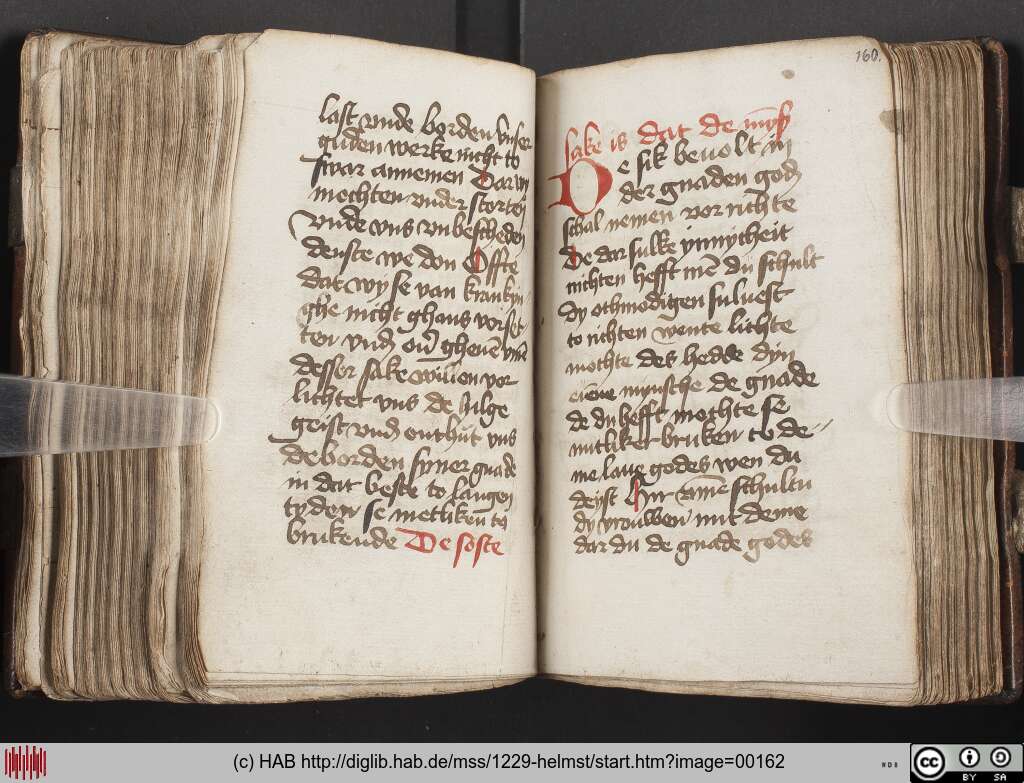 last vnde borden vnser
guden werke nicht to
swar annemen Dar wy
mochten vnder storten
vnde vns vnbescheden
denste we don Offte
dat wy se van krankin
ghe nicht ghans vorset
ten vnd
desser sake willen vor
lichtet vns de hilge
geist vnd onthut vns
de borden syner gnade
in dat beste to langen
tyden se metliken to
brukende De soste
160.
sake is dat de
De sik beuolt in
der gnaden god
schal nemen vor richte
De dar sulke ynnycheit
nichten hefft du schult
dy othmodigen suluest
to richten wente lichte
mochte des hedde dyn
mynsche de gnade
de du hefft mochte se
nutliker bruken to de
me laue godes wen du
deyst Hir schultu
dy vrouwen mit deme
dar du de gnade godes
(c) HAB http://diglib.hab.de/mss/1229-helmst/start.htm?image=00162
WDB
CC BY SA